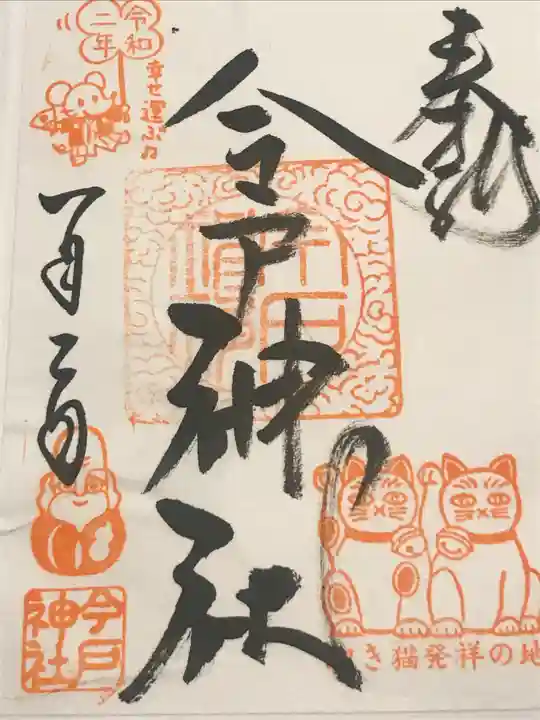 奉拝
今戸神社
令和
二年
幸せ運ぶ♫
一月二日
今戸
神社
き猫発祥の地